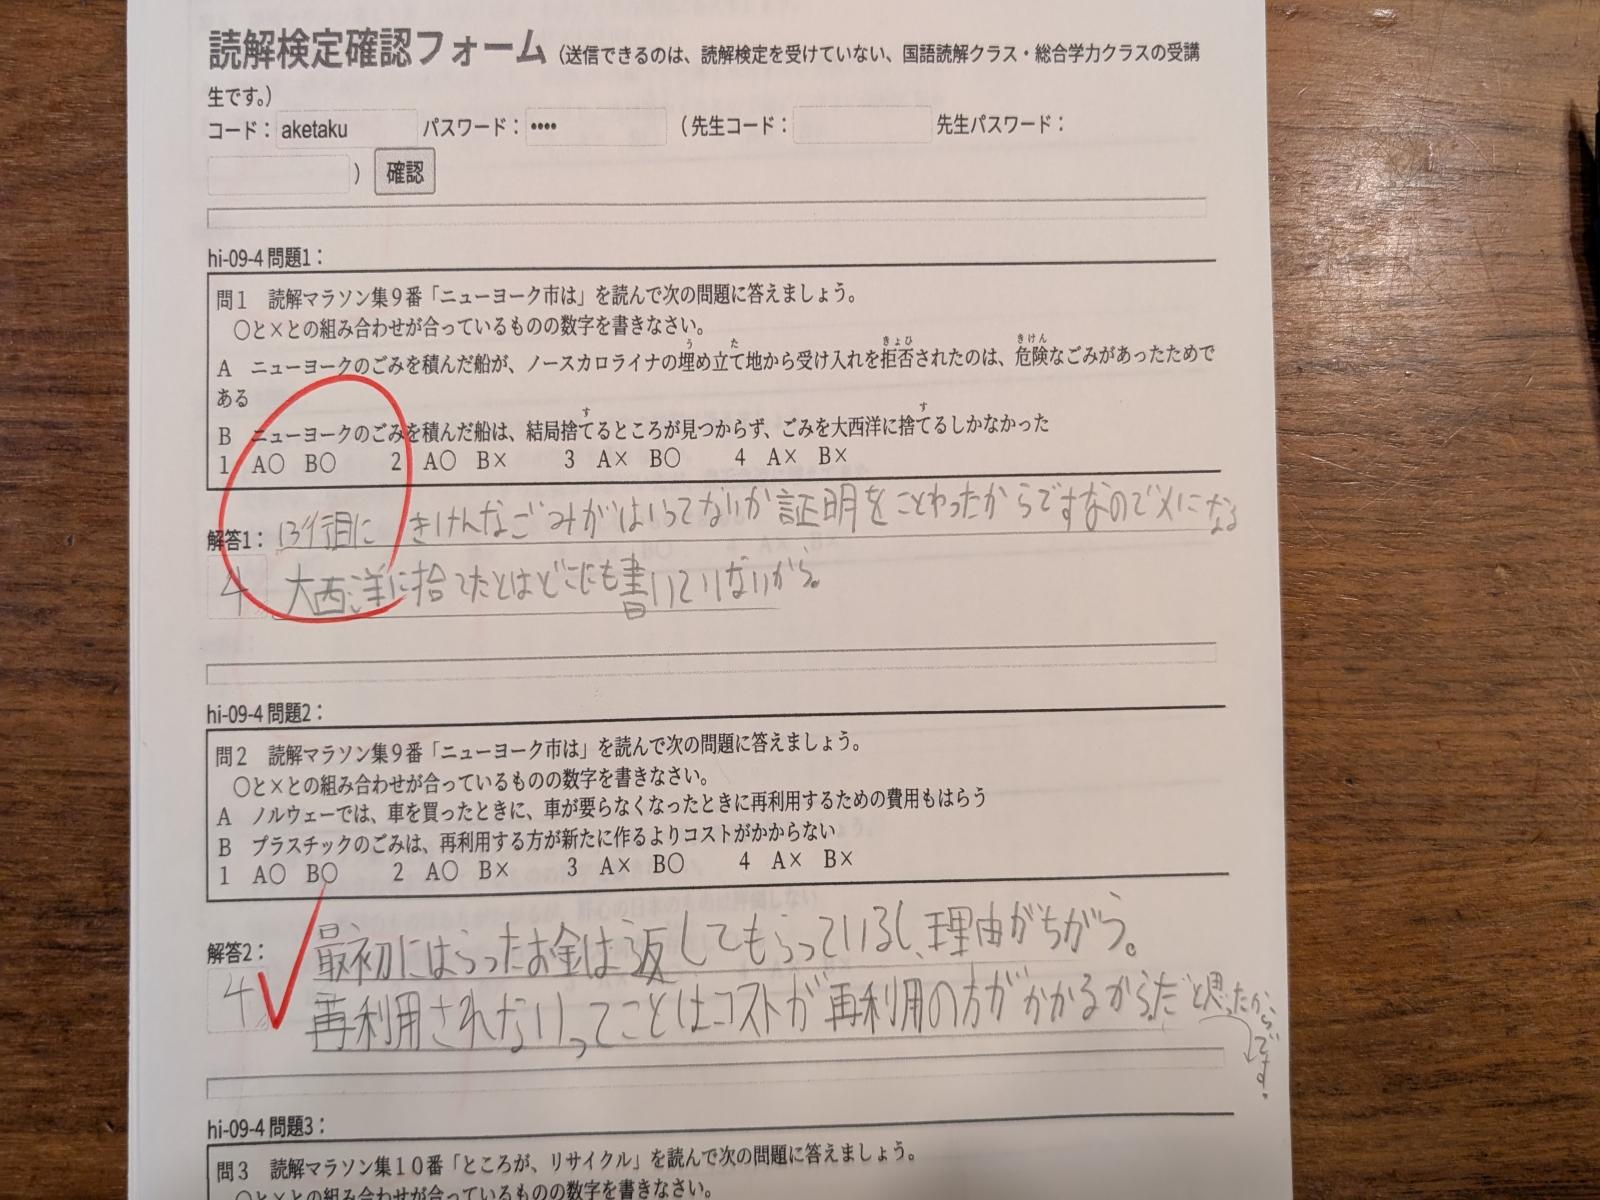 読解検定確認フォーム（送信できるのは、読解検定を受けていない、国語読解クラス・総合学力クラスの受講
生です。）
コード： aketaku パスワード： •••• （先生コード： 先生パスワード：
） 確認
hi-09-4 問題1：
問１　読解マラソン集９番「ニューヨーク市は」を読んで次の問題に答えましょう。
○と×との組み合わせが合っているものの数字を書きなさい。
う た きょひ きけん
A　ニューヨークのごみを積んだ船が、ノースカロライナの埋め立て地から受け入れを拒否されたのは、危険なごみがあったためで
ある
す す
B　ニューヨークのごみを積んだ船は、結局捨てるところが見つからず、ごみを大西洋に捨てるしかなかった
1　A○　B○　2　A○　B×　3　A×　B○　4　A×　B×
13行目に きけんなごみがはいってないか証明をことわったからですなので×になる
解答1：
4 大西洋に捨てたとはどこにも書いていないから。
hi-09-4 問題2：
問２　読解マラソン集９番「ニューヨーク市は」を読んで次の問題に答えましょう。
○と×との組み合わせが合っているものの数字を書きなさい。
A　ノルウェーでは、車を買ったときに、車が要らなくなったときに再利用するための費用もはらう
B　プラスチックのごみは、再利用する方が新たに作るよりコストがかからない
1　A○　B○　2　A○　B×　3　A×　B○　4　A×　B×
解答2： 最初にはらったお金は返してもらっているし、理由がちがう。
4 再利用されないってことはコストが再利用の方がかかるからだと思ったから
です。
hi-09-4 問題3：
問３　読解マラソン集１０番「ところが、リサイクル」を読んで次の問題に答えましょう。
○と×との組み合わせが合っているものの数字を書きなさい。